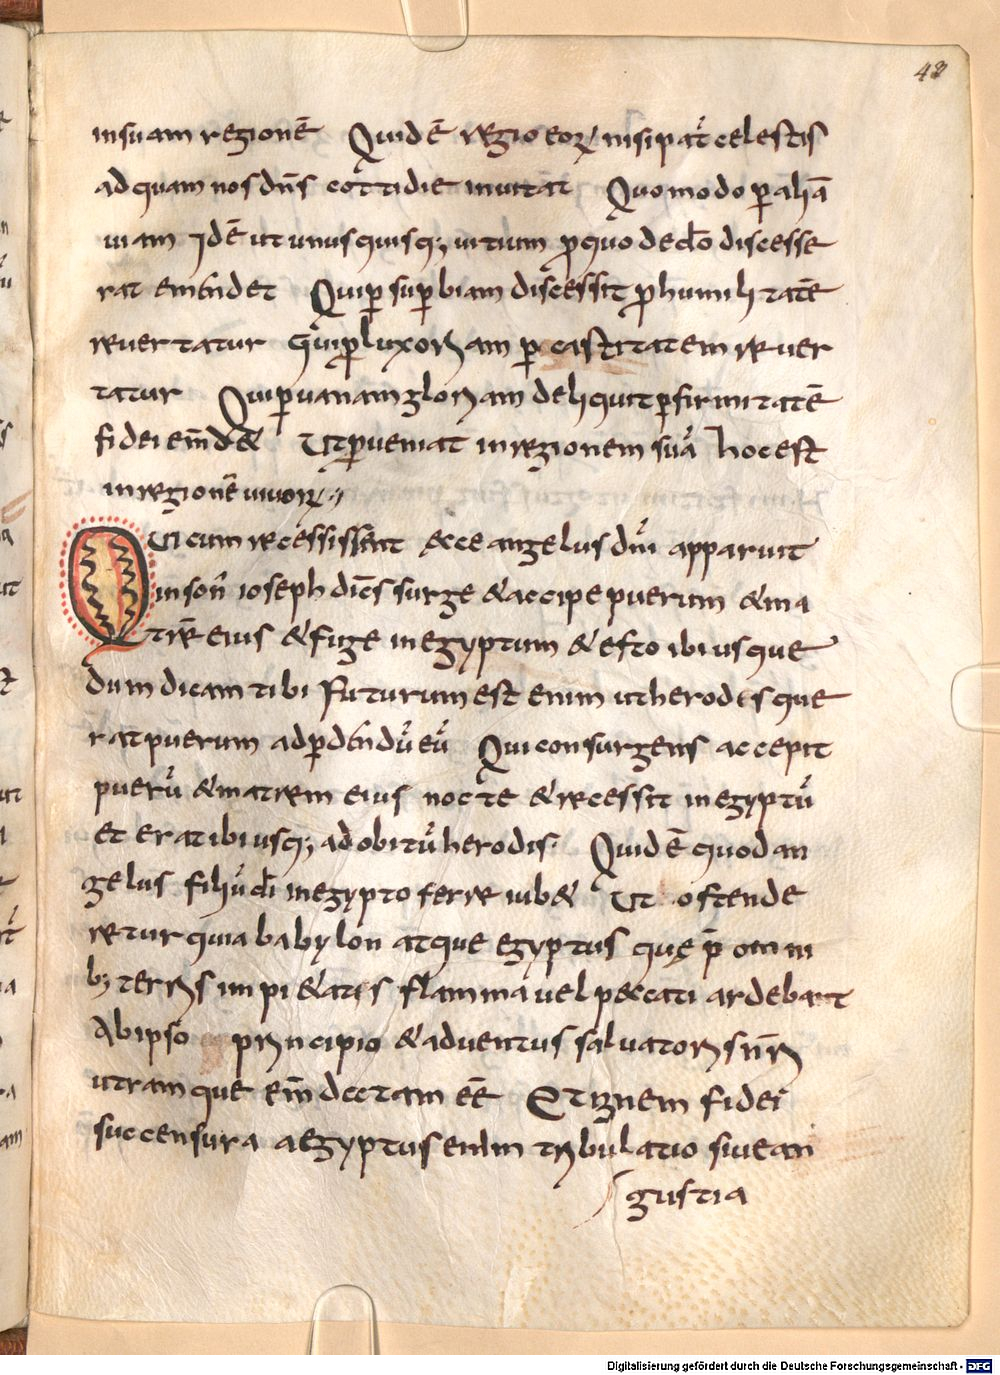 48
insuam regionē Quid ē regio eoꝝ nisi pat̄ celestis
adquam nos dn̄s cottidie inuitat Quomodo ꝑ aliā
uiam Idē ut unusquisq; uitium ꝓ quo de cl̄o discesse
rat emendet Qui ꝑ suꝑbiam discessit ꝓ humilitatē
reuertatur qui ꝑ luxoriam ꝑ castitatem reuer
tatur Qui ꝑ uanam gloriam deliquit ꝑ firmitatē
fidei em̄d& Ut ꝑueniat in regionem suā hoc est
in regionē uiuoꝝ
Qui cum recessissent ecce angelus dn̄i apparuit
in son̄ ioseph dic̄s surge & accipe puerum & ma
trē eius & fuge in egyptum & esto ibi usque
dum dicam tibi Futurum est enim ut herodes que
rat puerum ad ꝑdendū eū Qui consurgens accepit
puerū & matrem eius nocte & recessit in egyptū
et erat ibi usq; ad obitū herodis. Quid ē quod an
gelus filiū dī in egypto ferre iub& Ut ostende
retur quia babylon atque egyptus quę p̄ omni
b; terris impi&atis flamma uel peccati ardebant
Ab ipso principio & aduentus saluatoris nr̄i
utramque em̄dectam eē Et ignem fidei
succensura aegyptus enim tribulatio siue an
gustia
Digitalisierung gefördert durch die Deutsche Forschungsgemeinschaft - DFG